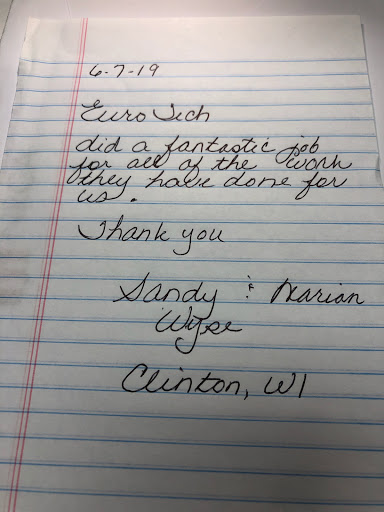 6-7-19
Euro Tech
did a fantastic job
for all of the work
they have done for
us.
Thank you
Sandy & Marian
Wyse
Clinton, WI